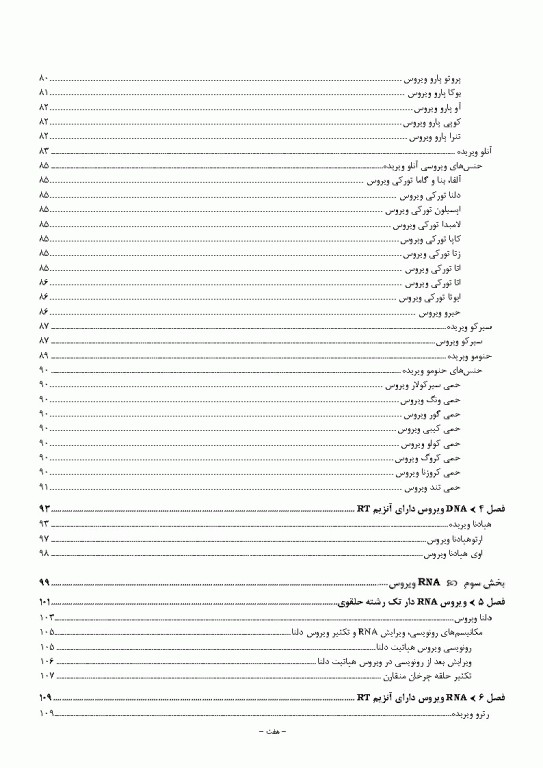 پروتو پارو ویروس ........ ۸۰
بوکا پارو ویروس ........ ۸۱
آو پارو ویروس ........ ۸۲
کوپی پارو ویروس ........ ۸۲
تترا پارو ویروس ........ ۸۲
آنلو ویریده ........ ۸۳
جنس‌های ویروسی آنلو ویریده ........ ۸۵
آلفا، بتا و گاما تورکی ویروس ........ ۸۵
دلتا تورکی ویروس ........ ۸۵
اپسیلون تورکی ویروس ........ ۸۵
لامبدا تورکی ویروس ........ ۸۵
کاپا تورکی ویروس ........ ۸۵
زتا تورکی ویروس ........ ۸۵
اتا تورکی ویروس ........ ۸۵
اتا تورکی ویروس ........ ۸۶
ایوتا تورکی ویروس ........ ۸۶
جیرو ویروس ........ ۸۶
سیرکو ویریده ........ ۸۷
سیرکو ویروس ........ ۸۷
جنومو ویریده ........ ۸۹
جنس‌های جنومو ویریده ........ ۹۰
جمی سیرکولار ویروس ........ ۹۰
جمی ونگ ویروس ........ ۹۰
جمی گور ویروس ........ ۹۰
جمی کیبی ویروس ........ ۹۰
جمی کولو ویروس ........ ۹۰
جمی کروگ ویروس ........ ۹۰
جمی کروزنا ویروس ........ ۹۰
جمی تند ویروس ........ ۹۱
فصل ۴ ≻ DNA ویروس دارای آنزیم RT ........ ۹۳
هپادنا ویریده ........ ۹۳
ارتوهپادنا ویروس ........ ۹۷
اوی هپادنا ویروس ........ ۹۸
بخش سوم RNA ویروس ........ ۹۹
فصل ۵ ≻ ویروس RNA دار تک رشته حلقوی ........ ۱۰۱
دلتا ویروس ........ ۱۰۳
مکانیسم‌های رونویسی، ویرایش RNA و تکثیر ویروس دلتا ........ ۱۰۵
رونویسی ویروس هپاتیت دلتا ........ ۱۰۵
ویرایش بعد از رونویسی در ویروس هپاتیت دلتا ........ ۱۰۶
تکثیر حلقه چرخان متقارن ........ ۱۰۷
فصل ۶ ≻ RNA ویروس دارای آنزیم RT ........ ۱۰۹
رترو ویریده ........ ۱۰۹
- هفت -